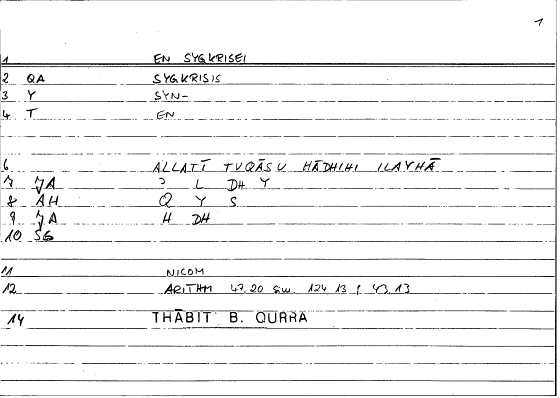 1
1 EN SYGKRISEI
2 QA SYGKRISIS
3 Y SYN-
4 T EN
6 ALLATĪ TUQĀSU HĀDHIHI ILAYHĀ
7 JA ʾ L DH Y
8 AH Q Y S
9 JA H DH
10 SG
11 NICOM
12 ARITHM 47.20 124.13 43.13
14 THĀBIT B. QURRA